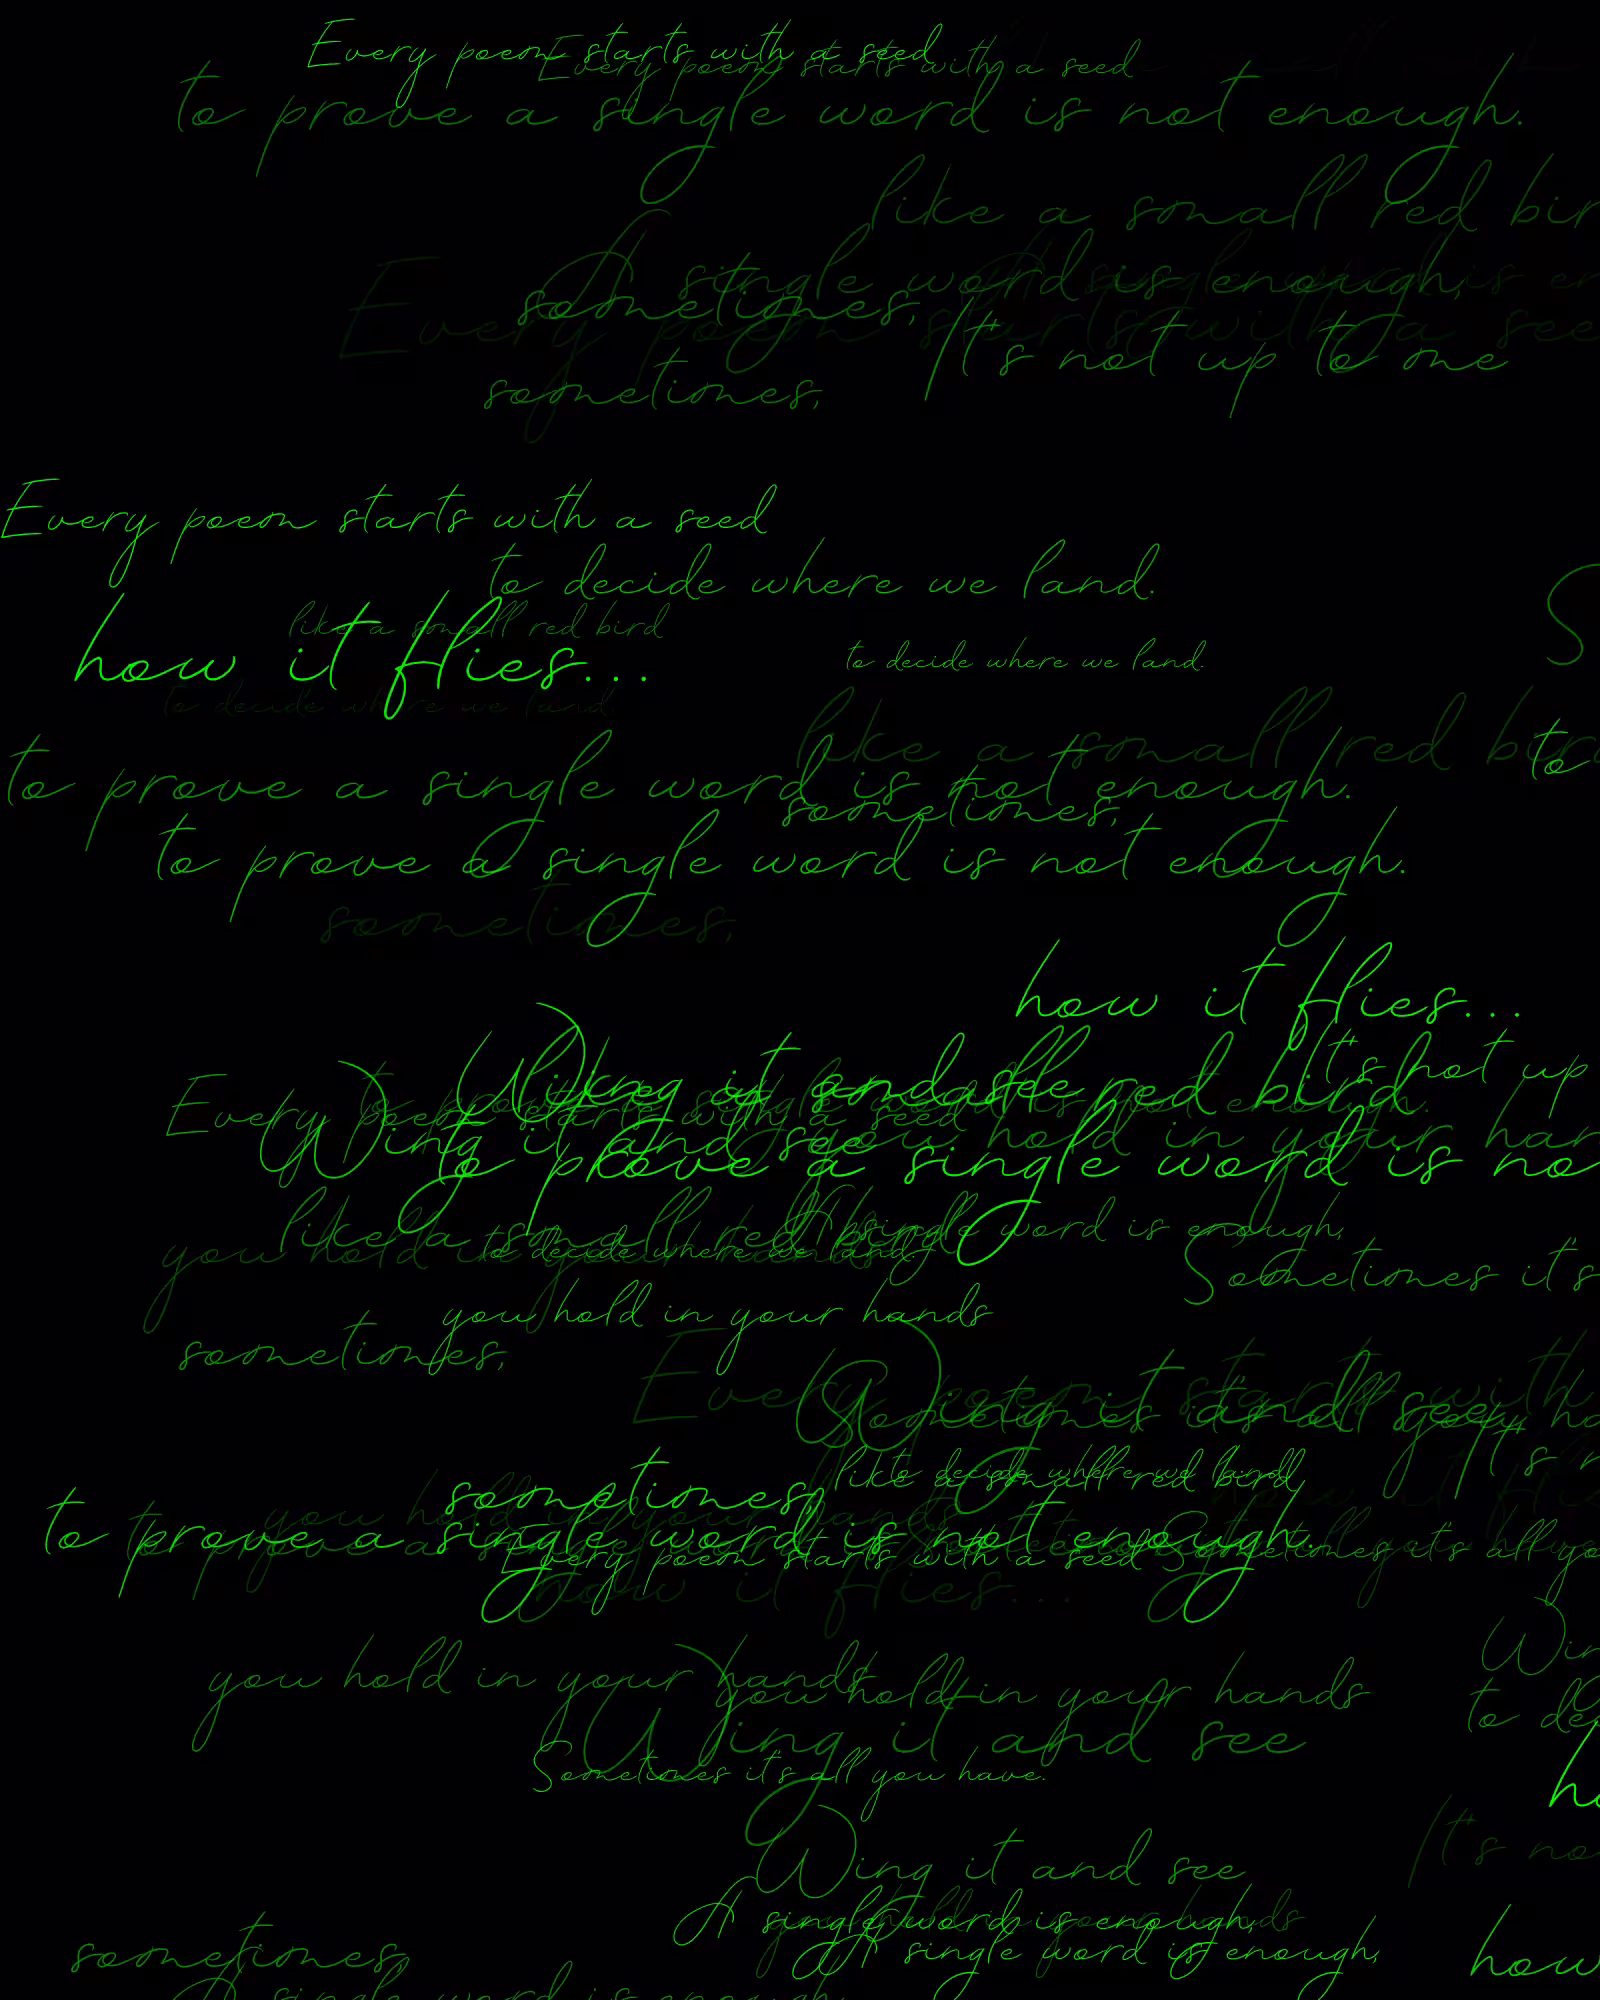 Every poem starts with a seed
Every poem starts with a seed
to prove a single word is not enough.
like a small red bir
A single word is enough,
sometimes,
Every poem starts with a see
It's not up to me
sometimes,
Every poem starts with a seed
to decide where we land.
like a small red bird
how it flies...
to decide where we land.
to decide where we land.
S
like a small red bird
to
to prove a single word is not enough.
sometimes,
to prove a single word is not enough.
sometimes,
how it flies...
It's not up
Wing it and see
like a small red bird
to prove a single word is not enough.
Every poem starts with a seed
Wing it and see
you hold in your han
to prove a single word is no
like a small red bird
A single word is enough,
you hold in your hands
to decide where we land.
Sometimes it's
you hold in your hands
sometimes,
Every poem starts with
Wing it and see
Sometimes it's all you ha
It's n
like a small red bird
to decide where we land.
sometimes,
you hold in your hands
to prove a single word is not enough.
to prove a
Every poem starts with a seed
Sometimes it's all yo
how it flies...
Win
you hold in your hands
you hold in your hands
to de
Wing it and see
Sometimes it's all you have.
h
It's no
Wing it and see
A single word is enough,
you hold in your hands
A single word is enough,
sometimes,
how
A single word is enough,